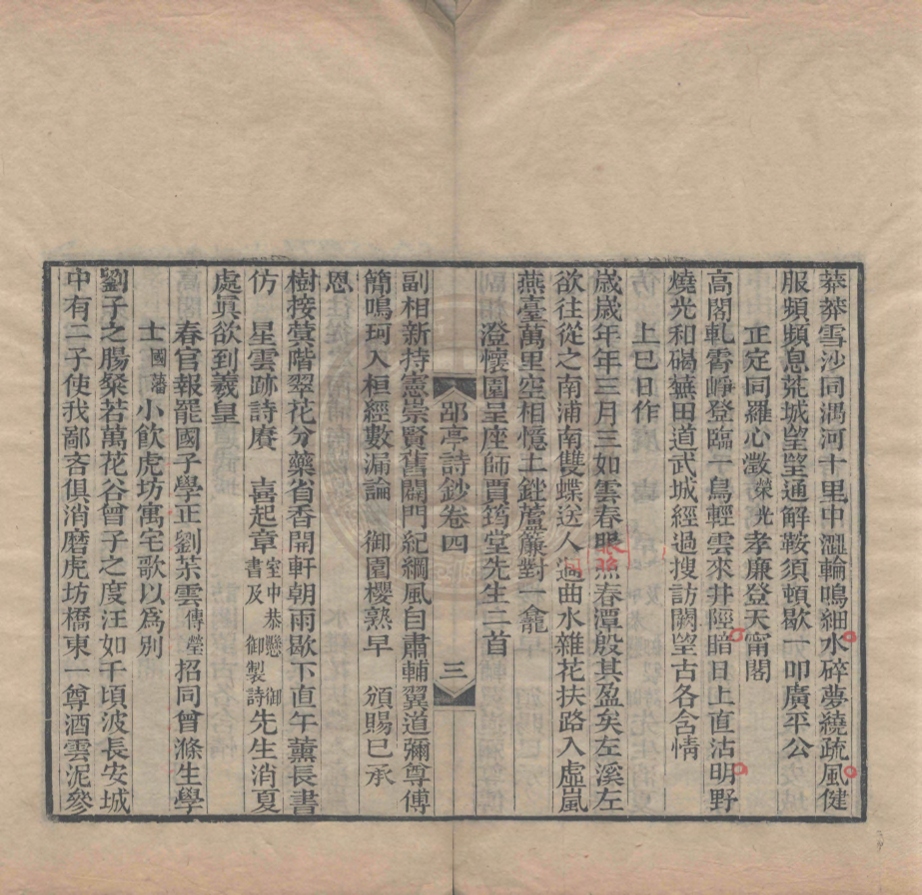 莽莽雪沙同渡河十里中澀輪鳴細水碎夢繞疏風健
服頻頻息荒城望望通解鞍須頓歇一叩廣平公
正定同羅心澂榮光孝廉登天甯閣
高閣軋霄崢登臨一鳥輕雲來井陘暗日上直沽明野
燒光和碣蕪田道武城經過搜訪闕望古各含情
上巳日作
歲歲年年三月三如雲春服照春潭殷其盈矣左溪左
欲往從之南浦南雙蝶送人過曲水雜花扶路入虛嵐
燕臺萬里空相憶土銼蘆簾對一龕
澄懷園呈座師賈筠堂先生二首
郘亭詩鈔卷四
三
副相新持憲崇賢舊闢門紀綱風自肅輔翼道彌尊傅
簡鳴珂入桓經數漏論 御園櫻熟早 頒賜已承
恩
樹接蓂階翠花分藥省香開軒朝雨歇下直午薰長書
仿 星雲跡詩賡 喜起章室中恭懸 御書及 御製詩先生消夏
處真欲到羲皇
春官報罷國子學正劉茮雲傳瑩招同曾滌生學
士國藩小飲虎坊寓宅歌以為別
劉子之腸粲若萬花谷曾子之度汪如千頃波長安城
中有二子使我鄙吝俱消磨虎坊橋東一尊酒雲泥參